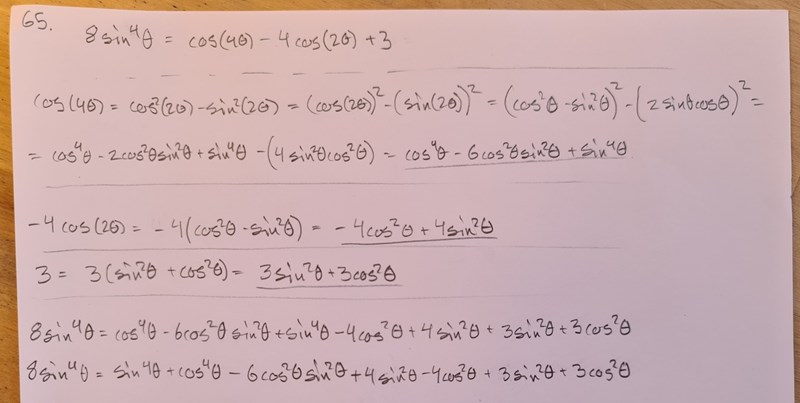 65.
8sin⁴θ = cos(4θ) - 4cos(2θ) + 3
cos(4θ) = cos²(2θ) - sin²(2θ) = (cos(2θ))² - (sin(2θ))² = (cos²θ - sin²θ)² - (2sinθcosθ)² =
= cos⁴θ - 2cos²θsin²θ + sin⁴θ - (4sin²θcos²θ) = cos⁴θ - 6cos²θsin²θ + sin⁴θ
-4cos(2θ) = -4(cos²θ - sin²θ) = -4cos²θ + 4sin²θ
3 = 3(sin²θ + cos²θ) = 3sin²θ + 3cos²θ
8sin⁴θ = cos⁴θ - 6cos²θ sin²θ + sin⁴θ - 4cos²θ + 4sin²θ + 3sin²θ + 3cos²θ
8sin⁴θ = sin⁴θ + cos⁴θ - 6cos²θsin²θ + 4sin²θ - 4cos²θ + 3sin²θ + 3cos²θ